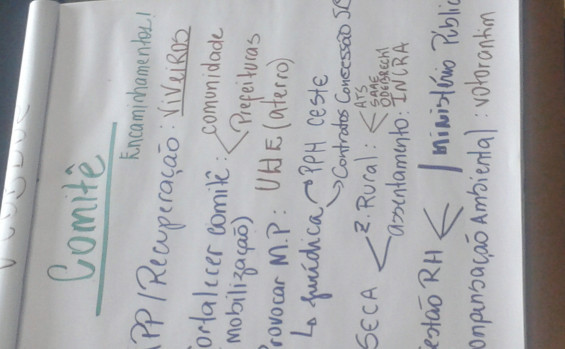 Comitê
Encaminhamentos!
APP/Recuperação: ViVeiROS
ortalecer comitê: comunidade
Prefeituras
mobilização)
rovocar M.P: UHE (aterro)
jurídica PPH CESTE
Contratos Concessão
SECA Z. Rural: ATS
SAAE
ODEBRECHT
assentamento: INCRA
estão RH / ministério Públic
ompensação Ambiental: votorantim